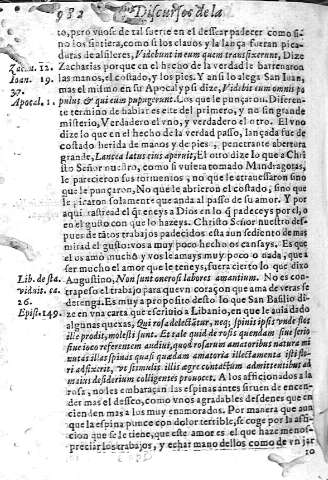 932 Discursos de la
to, pero vuose de tal suerte en el dessear padecer como si
no los sintiera, como si los clauos y la lança fueran pica
duras de alfileres, Videbunt in eum quem transfixerunt, Dize
Zacharias porque en el hecho de la verdad le barrenaron
las manos, el costado, y los pies. Y ansi lo alega San Iuan,
mas el mismo en su Apocalypsi dize, Videbit eum omnis po
pulus & qui eum pupugerunt. Los que le punçaron. Diferen
te termino de hablar es este del primero, y no sin grande
misterio, Verdadero el vno, y verdadero el otro. El vno
dize lo que en el hecho de la verdad passo, lançada fue de
costado herida de manos y de pies, penetrante abertura
grande, Lancea latus eius aperuit, El otro dize lo que a Chri
sto Señor nuestro, como si vuiera tomado Mandragoras,
le parecieron sus tormentos, y no que le atrauessaron sino
que le punçaron, No que le abrieron el costado, sino que
le picaron solamente que anda al passo de su amor. Y por
aqui rastread el que teneys a Dios en lo que padeceys por el, o
en el gusto con que lo hazeys. Christo Señor nuestro des-
pues de tãtos trabajos padecidos esta aun sediento de mas
mirad el gusto: vos a muy poco hecho os cansays. Es que
el os amo mucho y vos le amays muy poco o nada, que a
ser mucho el amor que le teneys, fuera cierto lo que dixo
Augustino, Nan sunt onerosi labores amantium. No es con-
trapeso el trabajo para que vn coraçon que ama de veras se
detenga. Es muy a proposito desto lo que San Basilio di-
ze en vna carta que escriuio a Libanio, en que le auia dado
algunas quexas, Qui rosa delectatur, neq; spinis ipsis vnde flos
ille prodit, molesti sunt. Et tale quid de rosis quendam siue serio
siue ioco referentem audiui, quod rosarum amatoribus natura mi
nutas illas spinas quasi quædam amatoria illectamenta isti flo-
ri adfixerit, vt stimulis illis agre contactum admittentibus ad
maius desiderium colligentes prouocet. A los afficionados a la
rosa, no les embaraçan las espinas antes siruen de encen-
der mas el desseo, como vnos agradables desdenes que en
cienden mas a los muy enamorados. Por manera que aun
que la espina punce con dolor terrible, se coge por la affi-
cion que se le tiene, que este amor es el que haze menos-
preciar los trabajos, y echar mano dellos como de vn jar
10
Zacha. 12.
Ioan. 19.
37.
Apocal. 1.
Lib. de sta.
viduit. ca.
26.
Epist. 149.